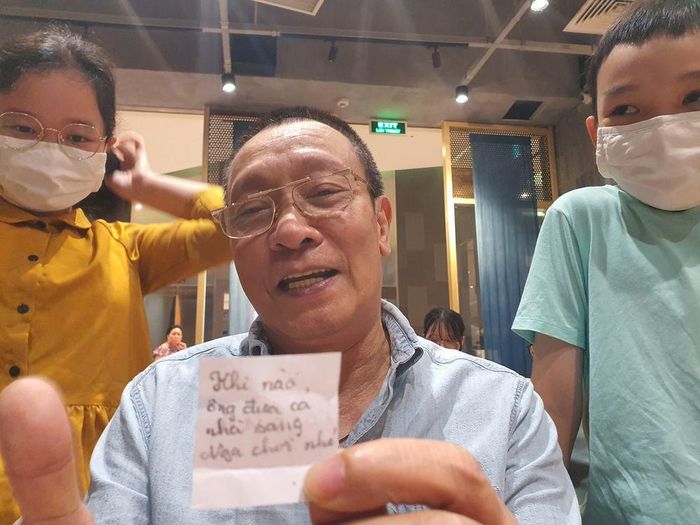 EXIT
LỐI THOÁT
Khi nào,
ông đưa cả
nhà sang
Nga chơi nhé